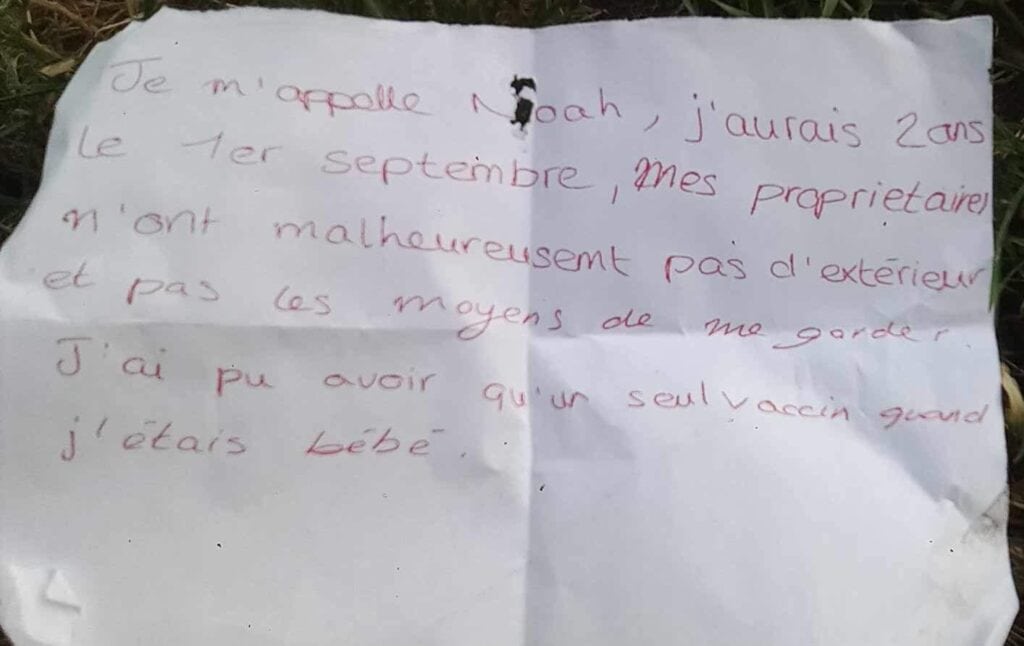 Je m'appelle Noah, j'aurais 2 ans
le 1er septembre, mes proprietaires
n'ont malheureusemt pas d'extérieur
et pas les moyens de me garder.
J'ai pu avoir qu'un seul vaccin quand
j'étais bébé.